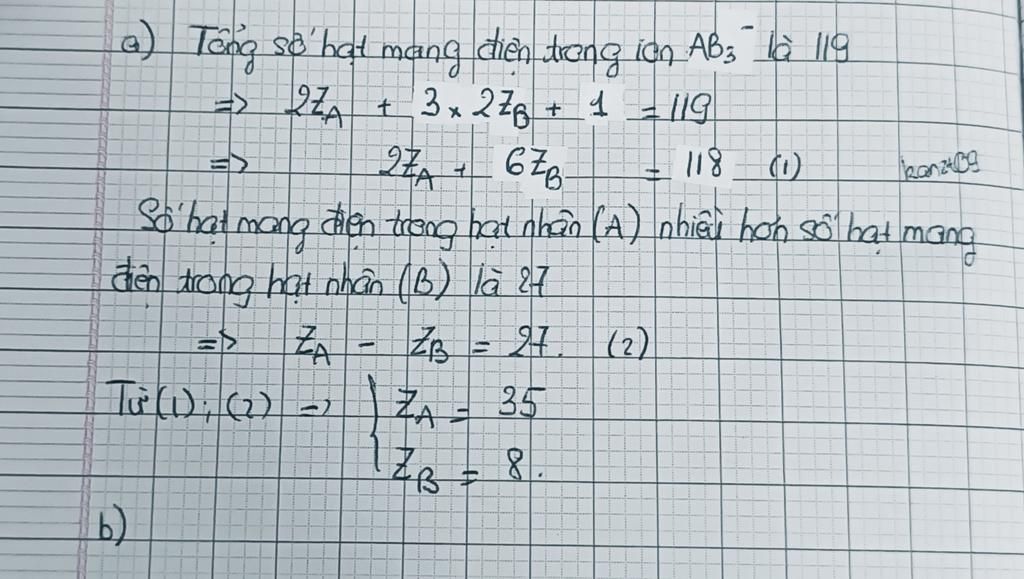 a) Tổng số hạt mang điện trong ion AB₃⁻ là 119
=> 2Z_A + 3 × 2Z_B + 1 = 119
=> 2Z_A + 6Z_B = 118 (1)
Số hạt mang điện trong hạt nhân (A) nhiều hơn số hạt mang
điện trong hạt nhân (B) là 27
=> Z_A - Z_B = 27. (2)
Từ (1); (2) => { Z_A = 35
Z_B = 8.
b)